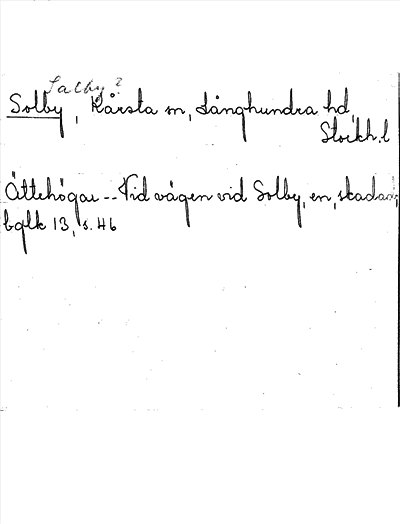 Salby?
Solby, Kårsta sn, Långhundra hd,
Stockh.l
Ättehögar -- Vid vägen vid Solby, en, skadad,
bglk 13, s. 46